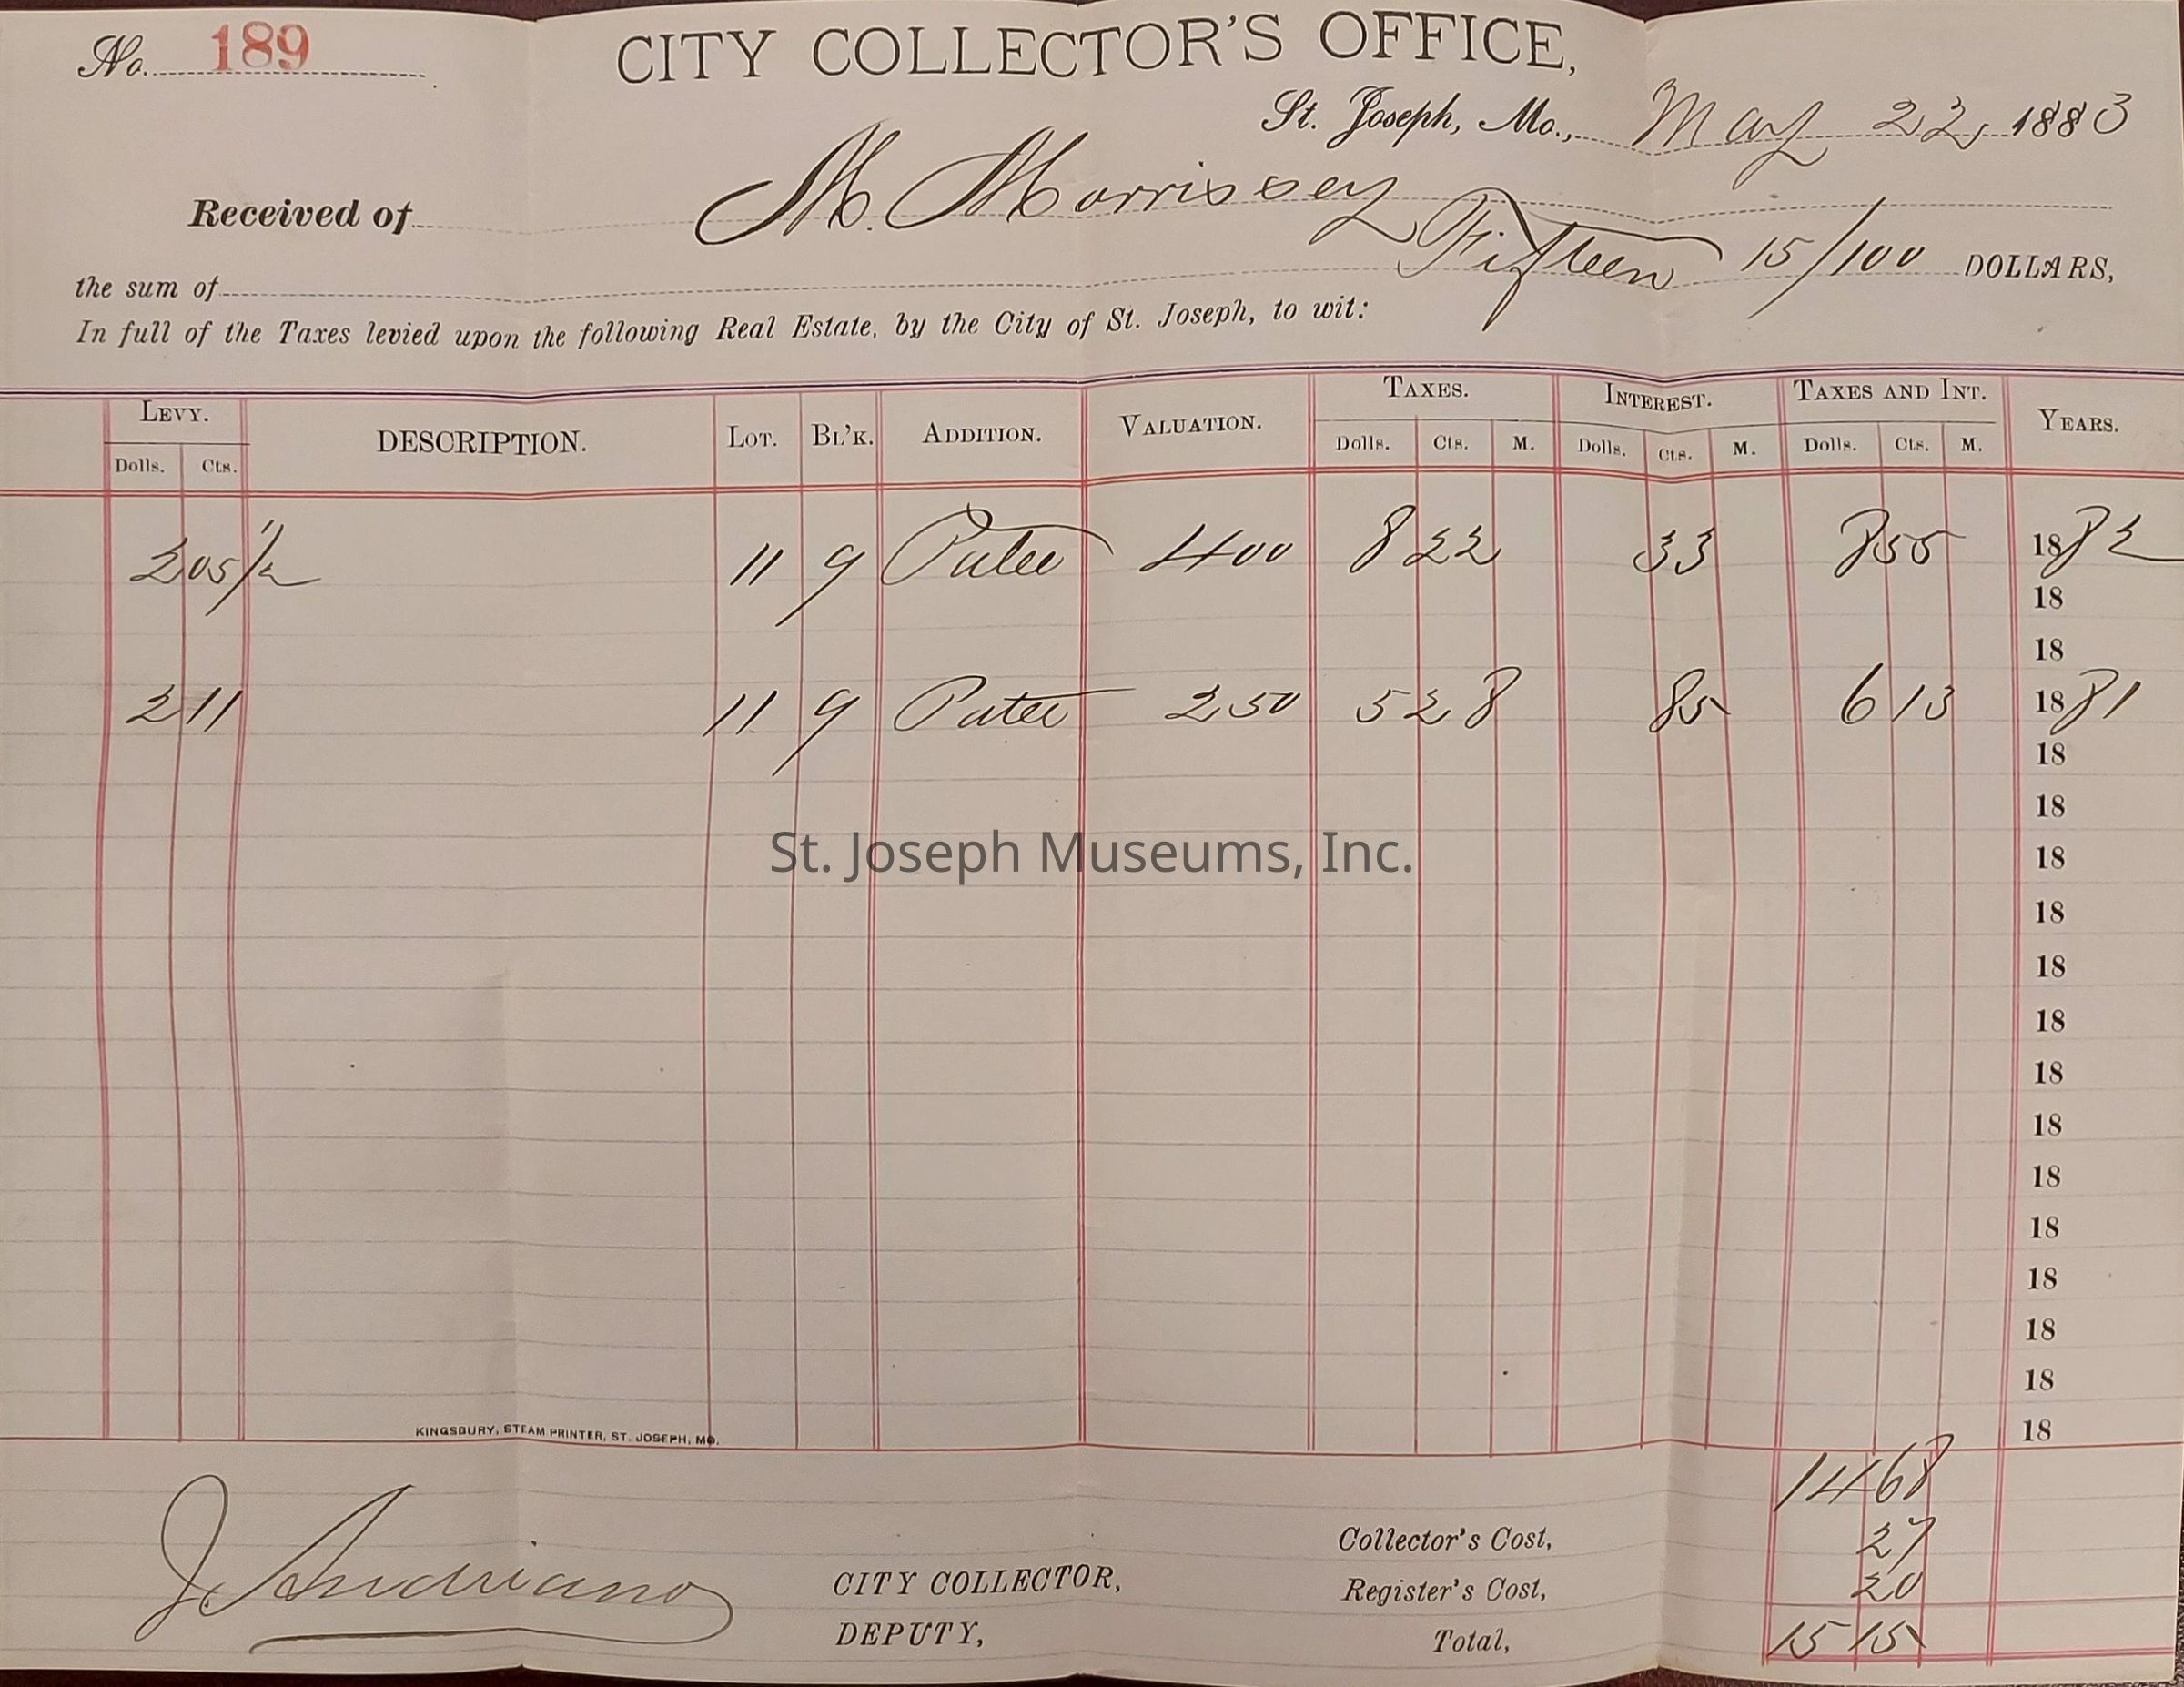 No. 189
CITY COLLECTOR'S OFFICE,
St. Joseph, Mo., May 22, 1883
Received of M. Morrissey
the sum of Fifteen 15/100 DOLLARS,
In full of the Taxes levied upon the following Real Estate, by the City of St. Joseph, to wit:
LEVY. DESCRIPTION. LOT. BL'K. ADDITION. VALUATION. TAXES. INTEREST. TAXES AND INT. YEARS.
Dolls. Cts. Dolls. Cts. M. Dolls. Cts. M. Dolls. Cts. M.
2 05 1/2 11 9 Patee 400 8 22 33 8 55 1882
18
18
2 11 11 9 Patee 250 5 28 85 6 13 1881
18
18
St. Joseph Museums, Inc.
18
18
18
18
18
18
18
18
18
18
18
18
KINGSBURY, STEAM PRINTER, ST. JOSEPH, MO.
14 68
J Andriano CITY COLLECTOR, Collector's Cost, 27
Register's Cost, 20
DEPUTY, Total, 15 15